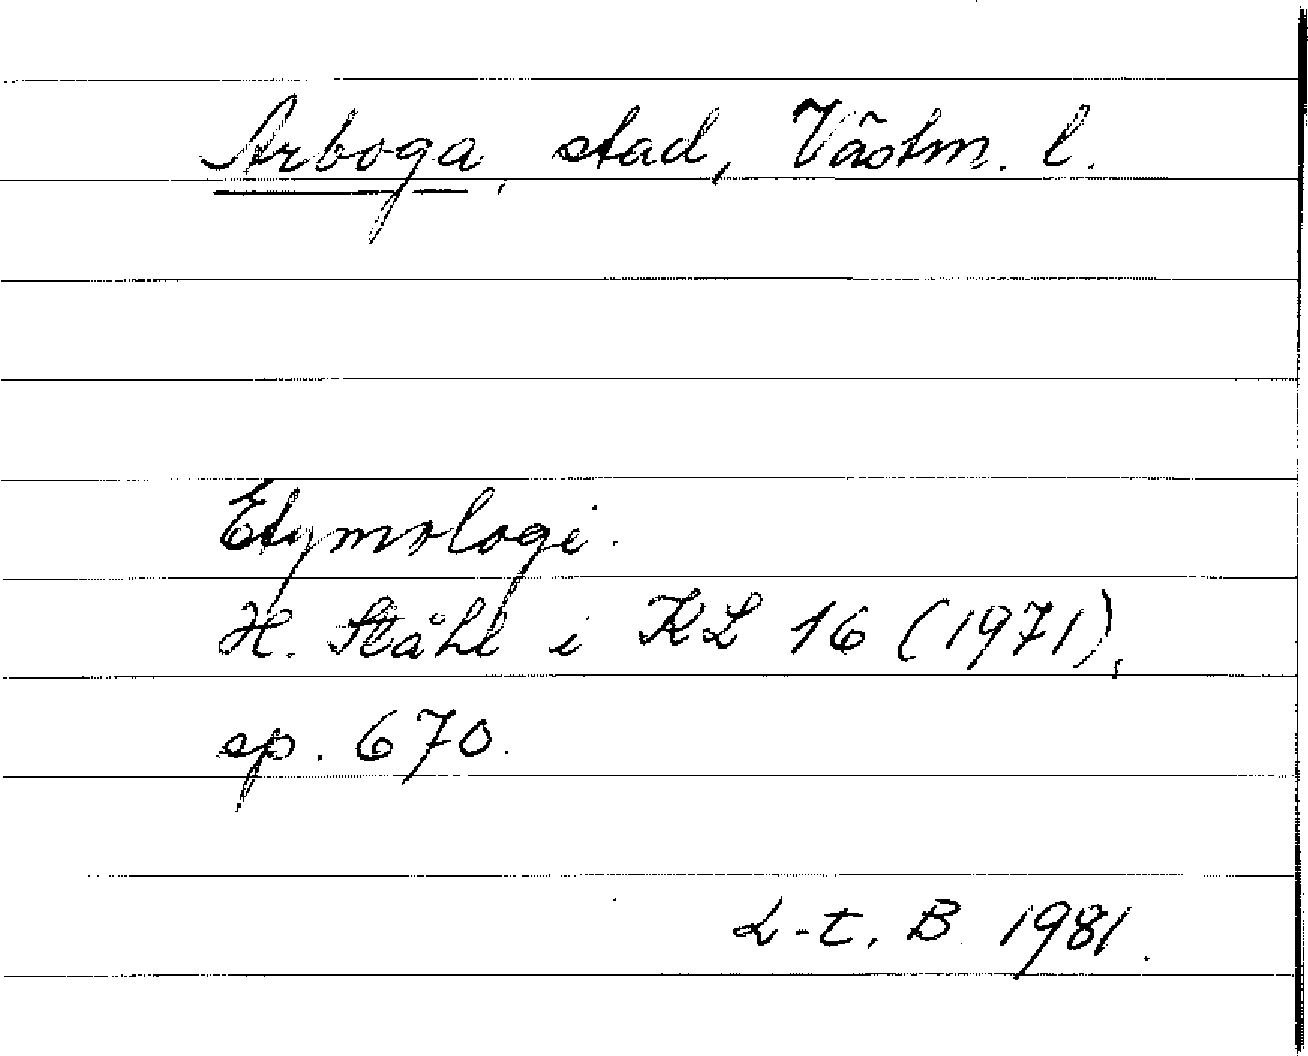 Arboga, stad, Västm. l.
Etymologi.
H. Ståhl i KL 16 (1971),
sp. 670.
L-t. B. 1981.